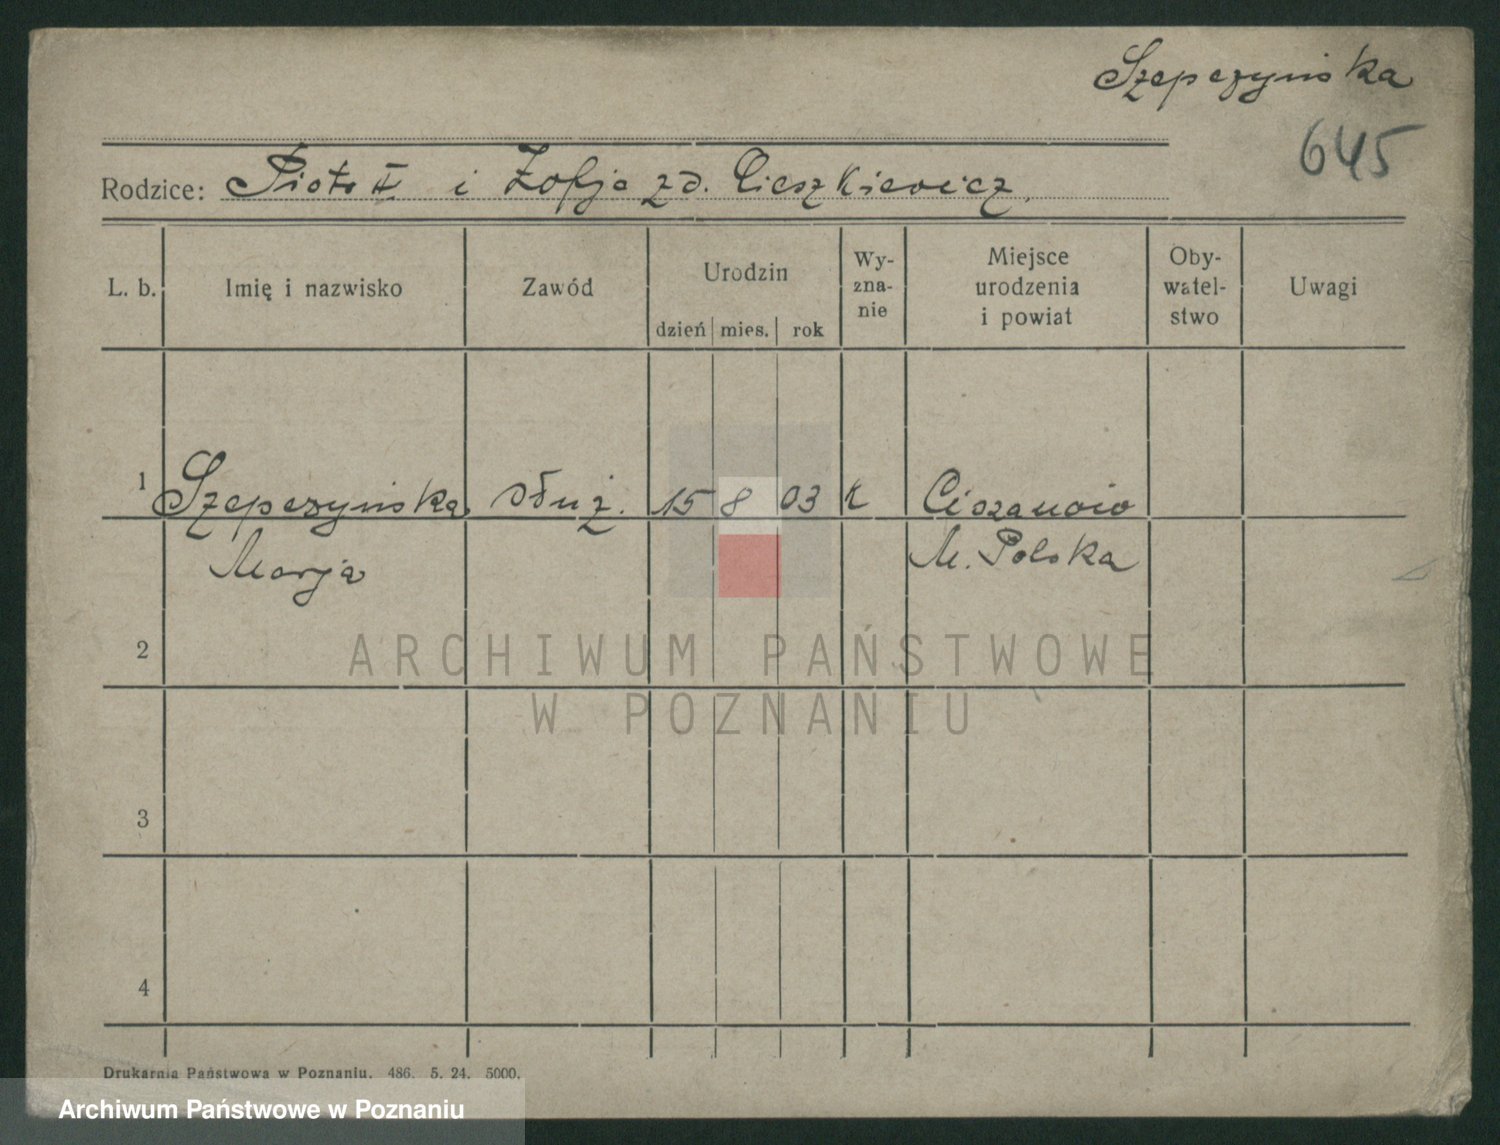 Szepczyńska
645
Rodzice: Piotr II i Zofja zd. Cieszkiewicz.
L. b. Imię i nazwisko Zawód Urodzin dzień mies. rok Wy-zna-nie Miejsce urodzenia i powiat Oby-watel-stwo Uwagi
1 Szepczyńska służ. 15 8 03 k Ciszanowo
Marja M. Polska
2
ARCHIWUM PAŃSTWOWE
W POZNANIU
3
4
Drukarnia Państwowa w Poznaniu. 486. 5. 24. 5000.
Archiwum Państwowe w Poznaniu